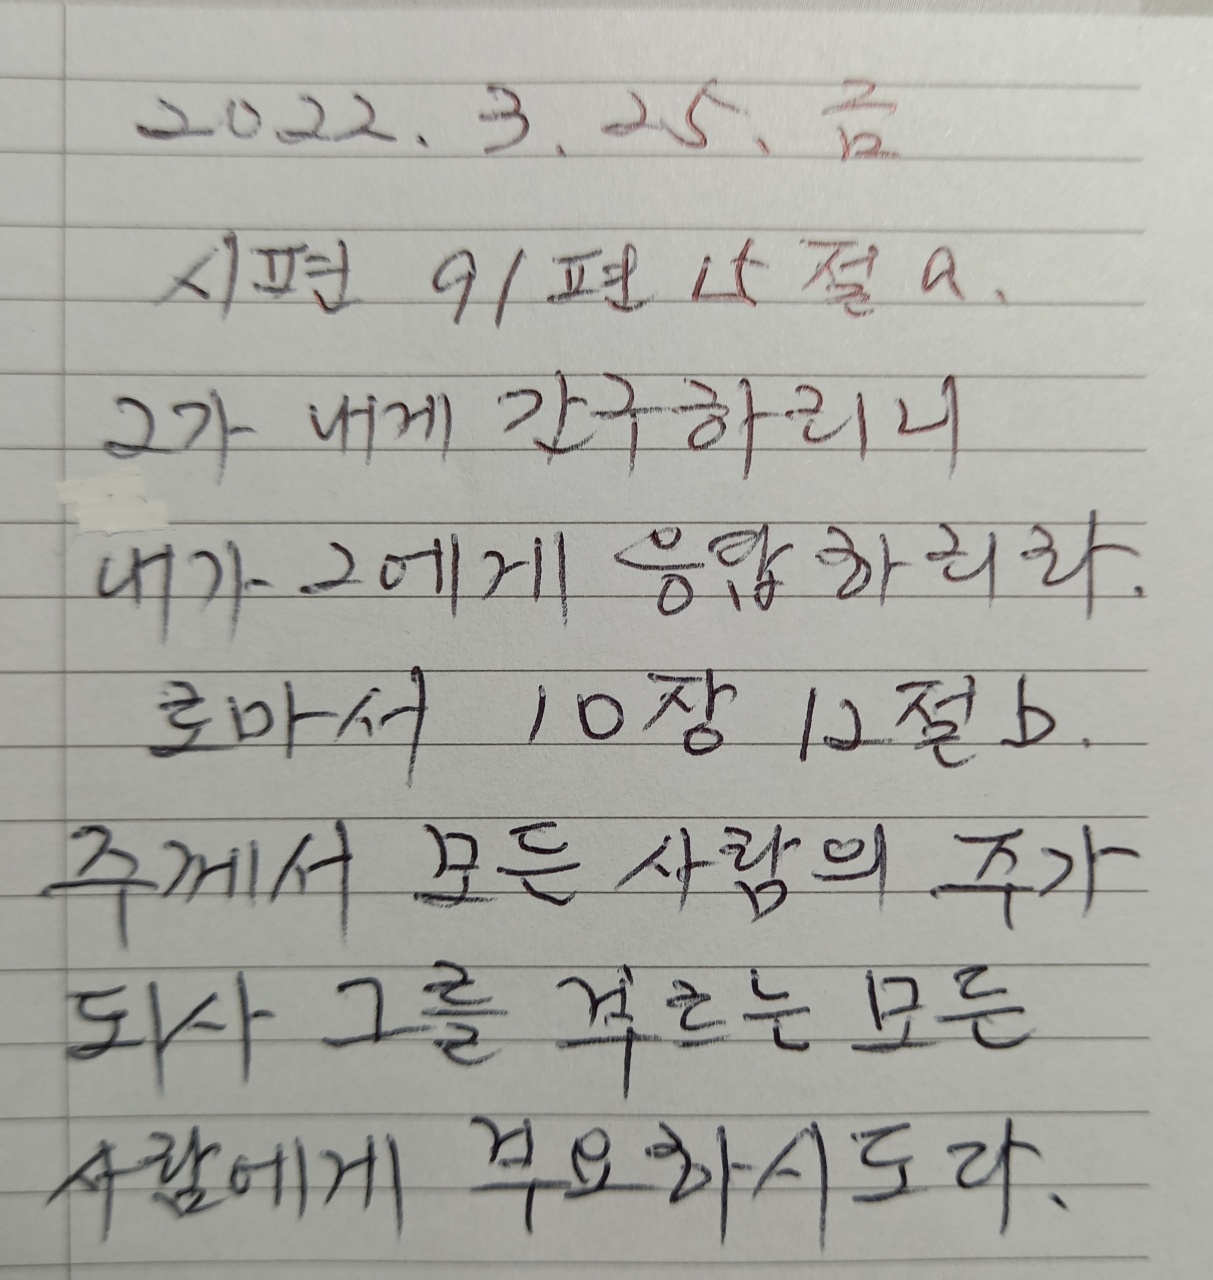 2022. 3. 25. 금
시편 91편 15절 a.
그가 내게 간구하리니
내가 그에게 응답하리라.
로마서 10장 12절 b.
주께서 모든 사람의 주가
되사 그를 부르는 모든
사람에게 부요하시도다.